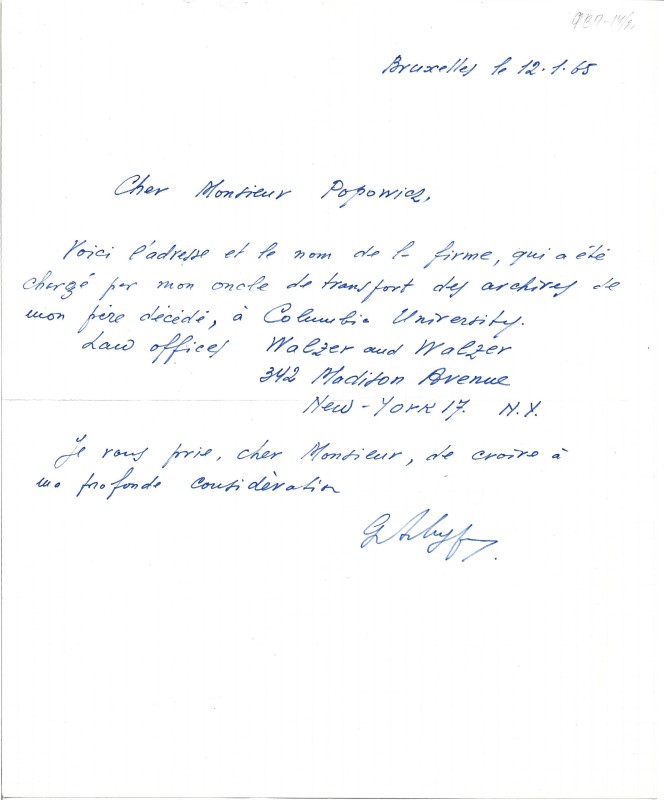 Bruxelles le 12.1.65
Cher Monsieur Popowicz,
Voici l'adresse et le nom de la firme, qui a été
chargé par mon oncle de transport des archives de
mon père décédé, à Columbia University.
Law offices Walzer and Walzer
342 Madison Avenue
New-York 17. N.Y.
Je vous prie, cher Monsieur, de croire à
ma profonde considèration